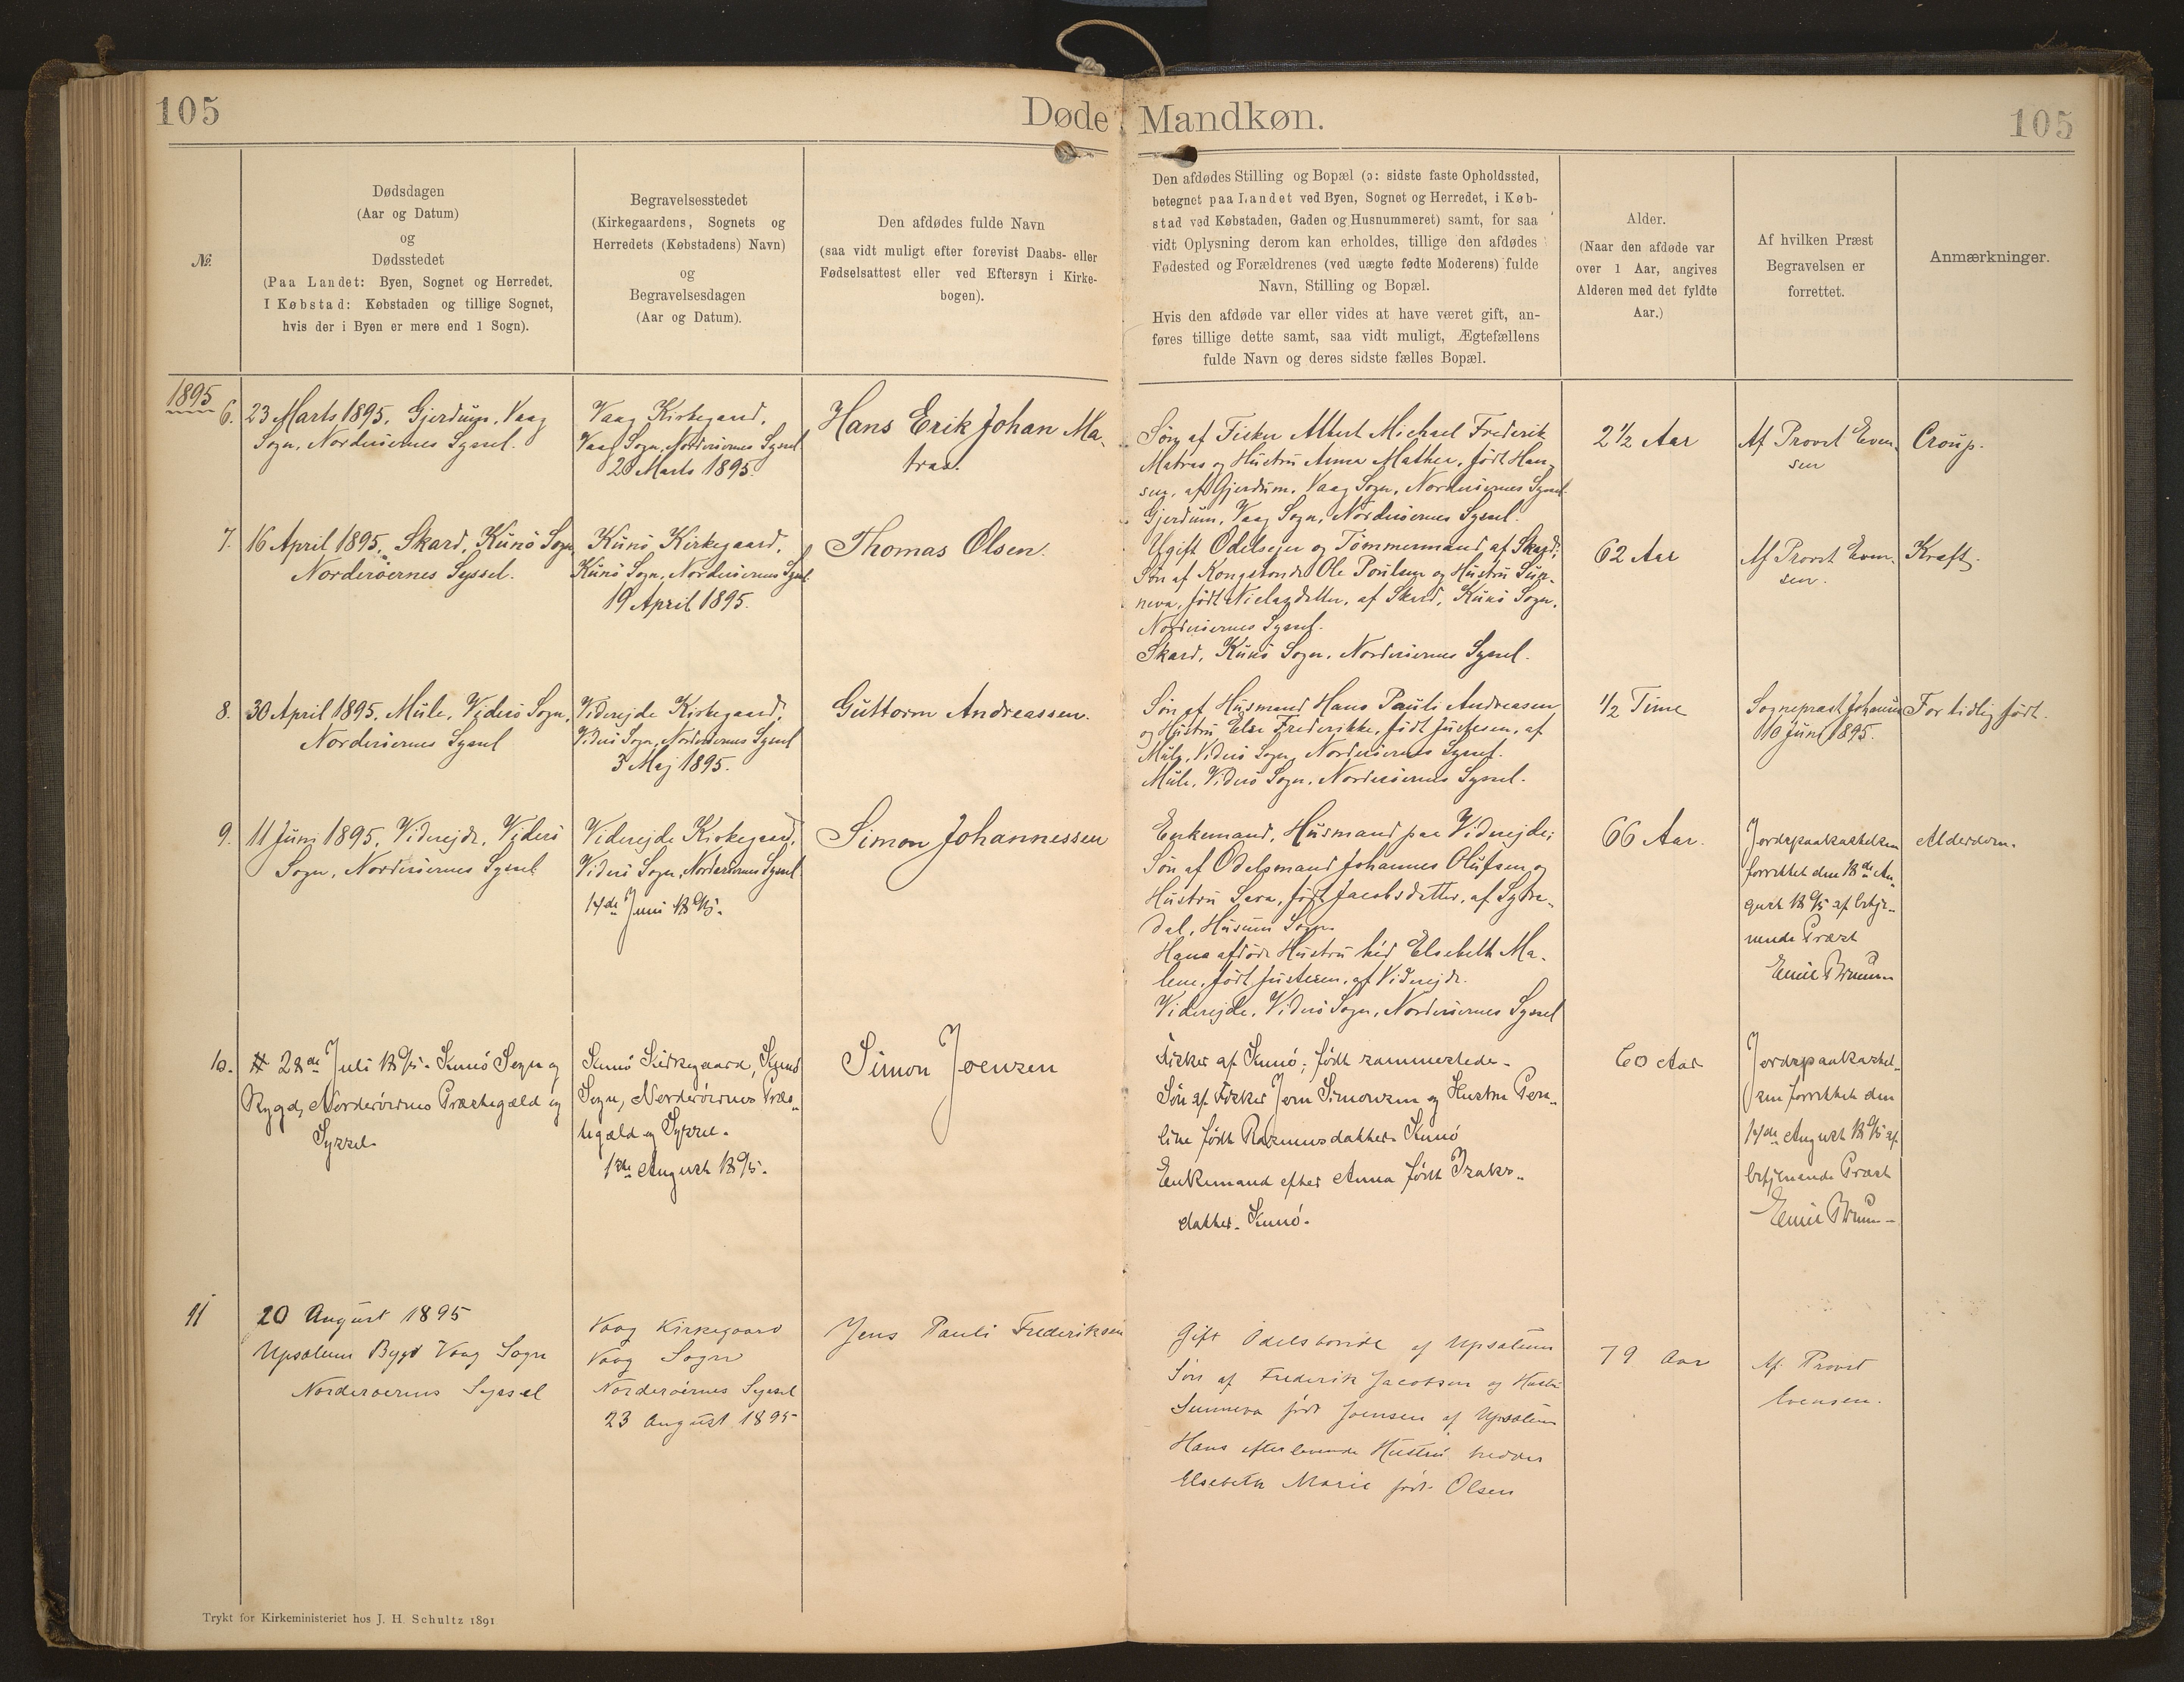 105
Døde
Mandkøn.
105
№.
Dødsdagen
(Aar og Datum)
og
Dødsstedet
(Paa Landet: Byen, Sognet og Herredet.
I Købstad: Købstaden og tillige Sognet,
hvis der i Byen er mere end 1 Sogn).
Begravelsesstedet
(Kirkegaardens, Sognets og
Herredets (Købstadens) Navn)
og
Begravelsesdagen
(Aar og Datum).
Den afdødes fulde Navn
(saa vidt muligt efter forevist Daabs- eller
Fødselsattest eller ved Eftersyn i Kirke-
bogen).
Den afdødes Stilling og Bopæl (ɔ: sidste faste Opholdssted,
betegnet paa Landet ved Byen, Sognet og Herredet, i Køb-
stad ved Købstaden, Gaden og Husnummeret) samt, for saa
vidt Oplysning derom kan erholdes, tillige den afdødes
Fødested og Forældrenes (ved uægte fødte Moderens) fulde
Navn, Stilling og Bopæl.
Hvis den afdøde var eller vides at have været gift, an-
føres tillige dette samt, saa vidt muligt, Ægtefællens
fulde Navn og deres sidste fælles Bopæl.
Alder.
(Naar den afdøde var
over 1 Aar, angives
Alderen med det fyldte
Aar.)
Af hvilken Præst
Begravelsen er
forrettet.
Anmærkninger.
1895
6.
23 Marts 1895, Gjerdum, Vaag
Sogn, Norderøernes Syssel.
Vaag Kirkegaard,
Vaag Sogn, Norderøernes Syssel
Marts 1895.
Hans Erik Johan Ma-
tras.
Søn af Fisker Albert Michael Frederik
Matras og Hustru Anna Mathea, født Han-
sen, af Gjerdum, Vaag Sogn, Norderøernes Syssel.
Gjerdum, Vaag Sogn, Norderøernes Syssel.
2 1/2 Aar
Af Provst Even-
sen
Croup.
7.
16 April 1895, Skard, Kunø Sogn,
Norderøernes Syssel.
Kunø Kirkegaard,
Kunø Sogn, Norderøernes Syssel.
19 April 1895.
Thomas Olsen.
Ugift Odelsejer og Tømmermand af Skard;
Søn af Kongsbonde Ole Poulsen og Hustru Sun-
neva, født Nielsdatter, af Skard, Kunø Sogn,
Norderøernes Syssel.
Skard, Kunø Sogn, Norderøernes Syssel.
62 Aar
Af Provst Even-
sen.
Kræft.
8.
30 April 1895. Mule, Viderø Sogn,
Norderøernes Syssel
Viderejde Kirkegaard,
Viderø Sogn, Norderøernes Syssel
3 Maj 1895.
Guttorm Andreassen.
Søn af Husmand Hans Pauli Andreasen
og Hustru Else Frederikke, født Justesen, af
Mule, Viderø Sogn, Norderøernes Syssel.
Mule, Viderø Sogn, Norderøernes Syssel.
1/2 Time
Sognepræst
Juni 1895.
For tidlig født.
9.
11 Juni 1895, Viderejde, Viderø
Sogn, Norderøernes Syssel
Viderejde Kirkegaard,
Viderø Sogn, Norderøernes Syssel
14de Juni 1895.
Simon Johannessen
Enkemand, Husmand paa Viderejde;
Søn af Odelsmand Johannes Olufsen og
Hustru Sara, født Jacobsdatter, af Sydra-
dal, Husum Sogn.
Hans afdøde Hustru héd Elsebeth Ma-
lene, født Justesen, af Viderejde.
Viderejde, Viderø Sogn, Norderøernes Syssel
66 Aar.
Jordspaakastelsen
forrettet den 18de Au-
gust 1895 af betje-
nende Præst
Emil Bruun
Alderdom.
10.
28de Juli 1895. Kunø Sogn og
Bygd, Norderøernes Præstegæld og
Syssel.
Kunø Kirkegaard, Kunø
Sogn, Norderøernes Præs-
tegæld og Syssel.
1ste August 1895.
Simon Joensen
Fisker af Kunø; født sammestede.
Søn af Fisker Joen Simonsen og Hustru Per-
line født Rasmusdatter. Kunø
Enkemand efter Anna født Isaks-
datter. Kunø.
60 Aar
Jordspaakastel-
sen forrettet den
14de August 1895 af
betjenende Præst
Emil Bruun
11
20 August 1895
Upsalum Bygd Vaag Sogn
Norderøernes Syssel
Vaag Kirkegaard
Vaag Sogn
Norderøernes Syssel
23 August 1895
Jens Pauli Frederiksen
Gift Odelsbonde af Upsalum
Søn af Frederik Jacobsen og Hustru
Sunneva født Joensen af Upsalum
Hans efterlevende Hustru hedder
Elsebeth Marie født Olsen
79 Aar
Af Provst
Evensen.
Trykt for Kirkeministeriet hos J. H. Schultz 1891